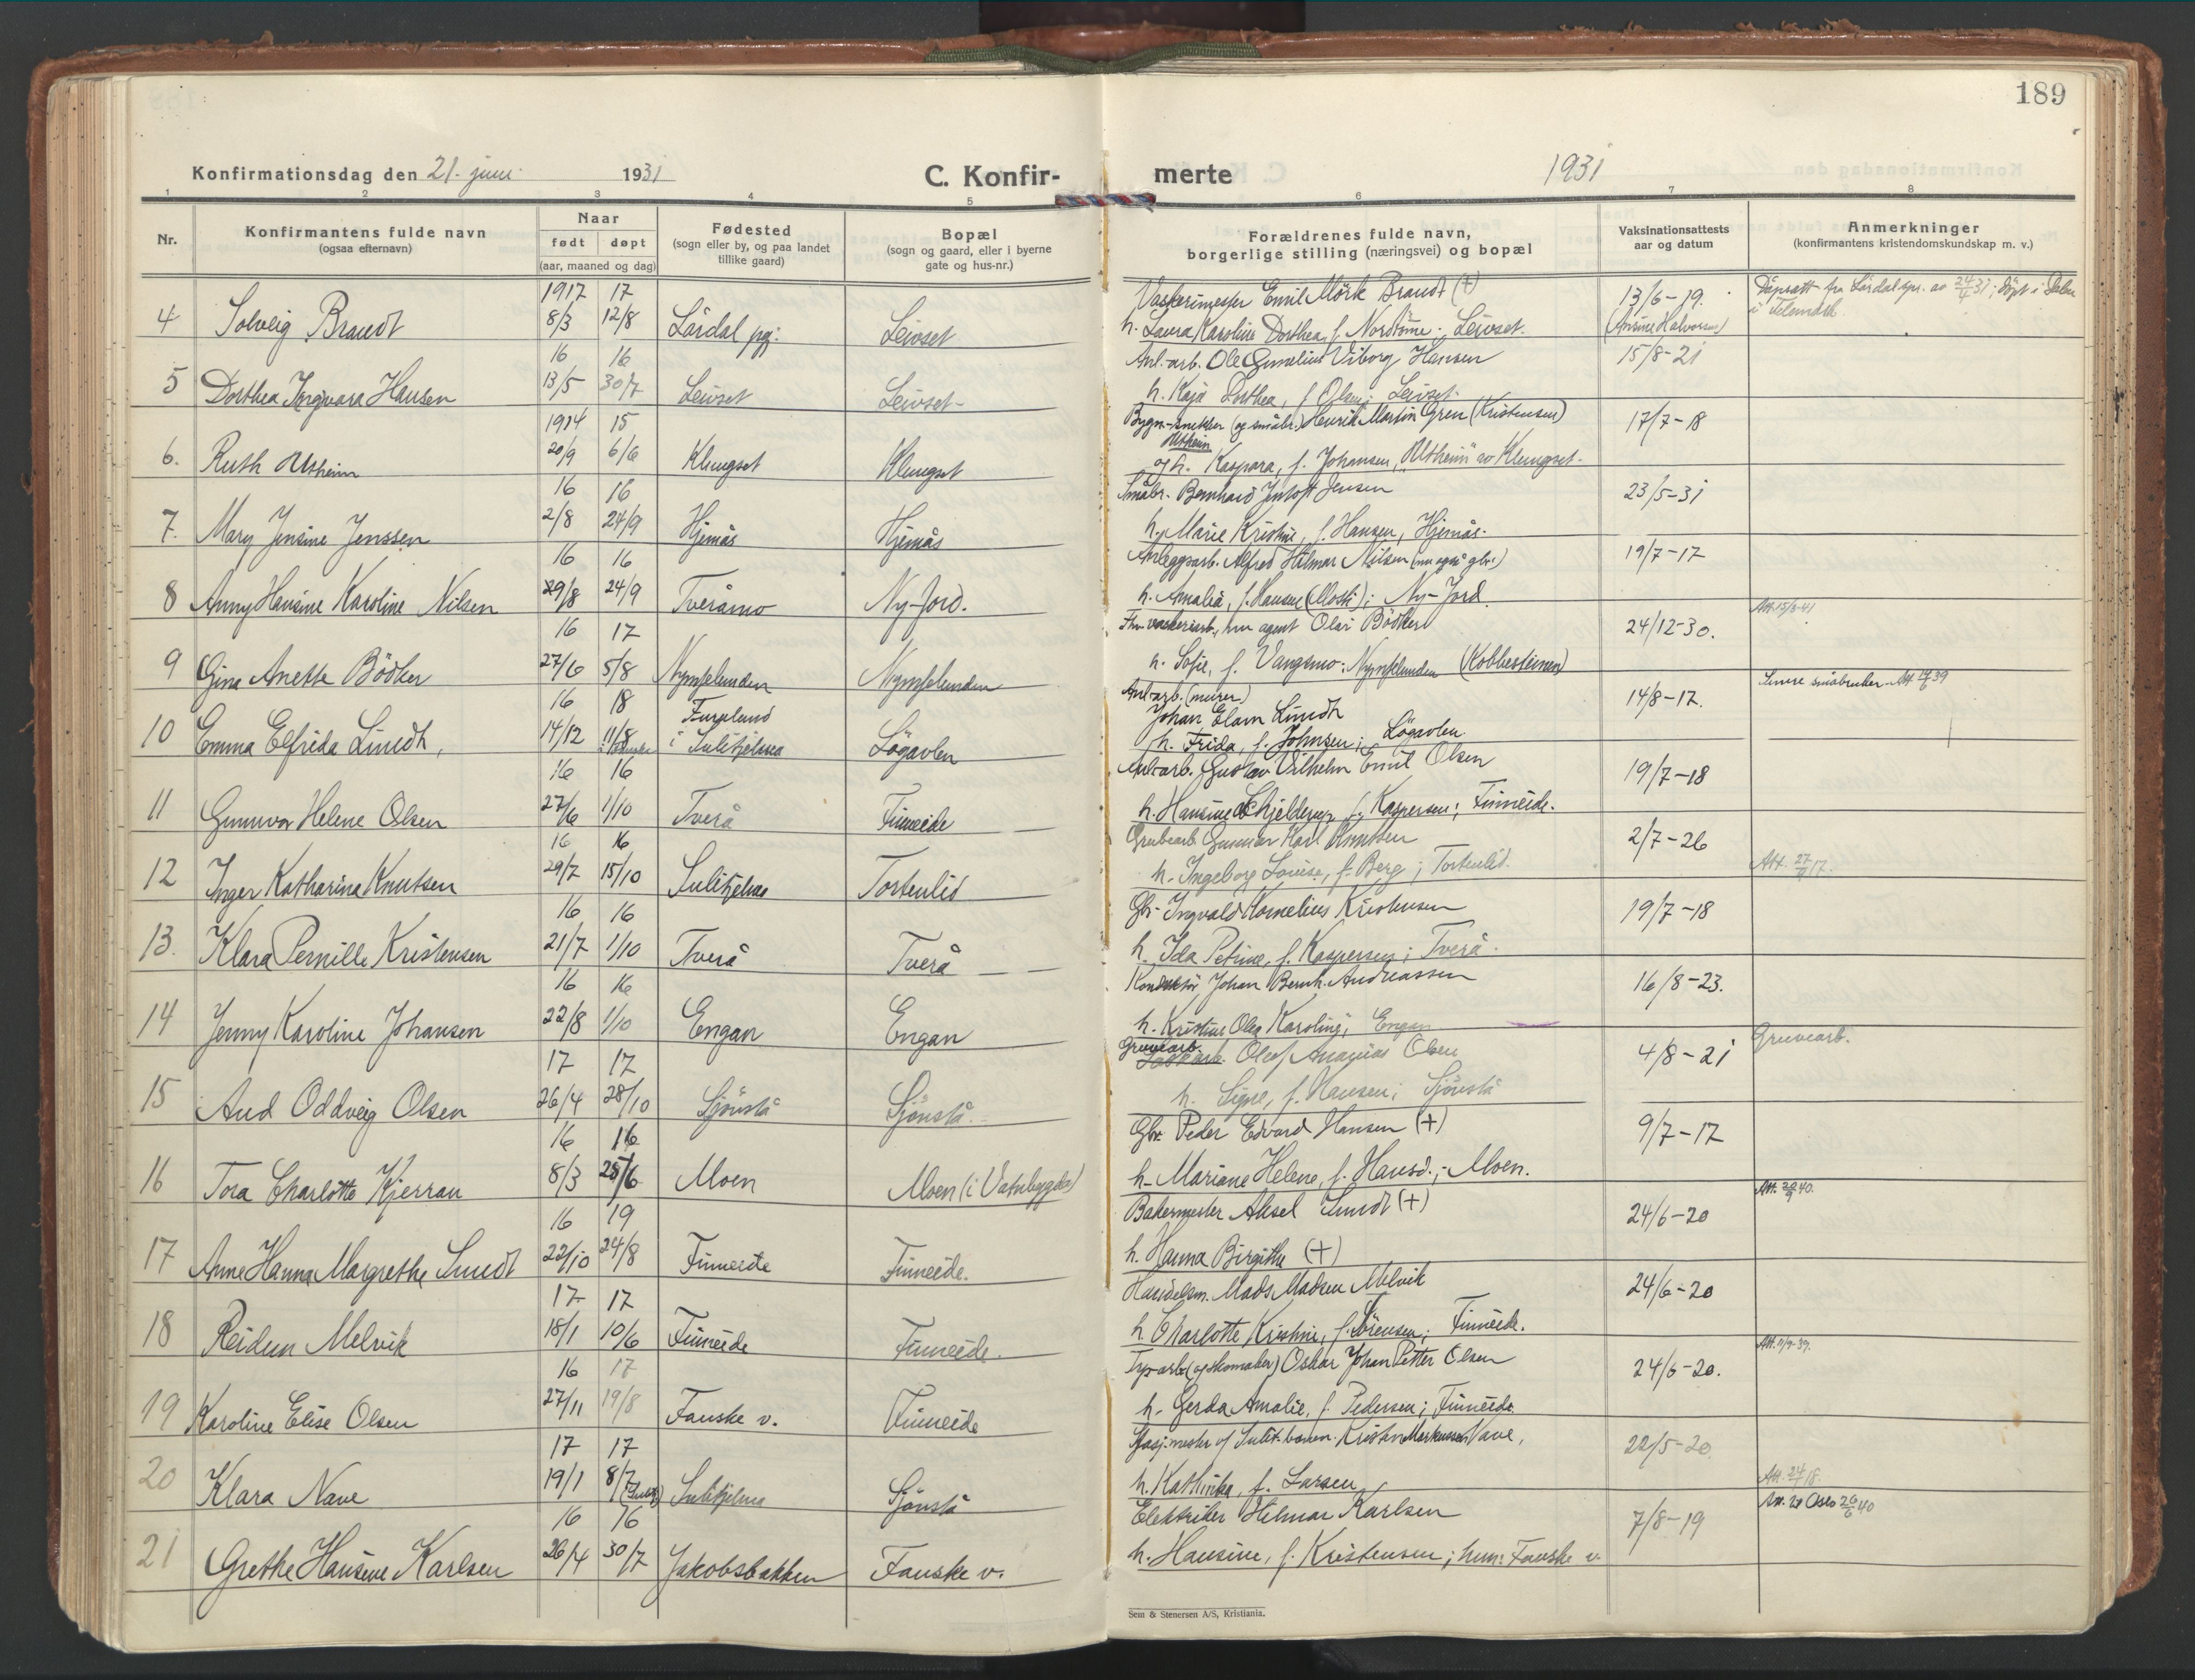 189
Konfirmationsdag den 21. juni 1931
C. Konfir-
merte
1931
1 2 3 4 5 6 7 8
Nr.
Konfirmantens fulde navn
(ogsaa efternavn)
Naar
født døpt
(aar, maaned og dag)
Fødested
(sogn eller by, og paa landet
tillike gaard)
Bopæl
(sogn og gaard, eller i byerne
gate og hus-nr.)
Forældrenes fulde navn,
borgerlige stilling (næringsvei) og bopæl
Vaksinationsattests
aar og datum
Anmerkninger
(konfirmantens kristendomskundskap m. v.)
1917 17 Vaskerimester Emil Mörk Brandt (+) 13/6-19.
4 Solveig Brandt 8/3 12/8 Lårdal pg: Leivset h. Laura Karoline Dorthea, f. ; Leivset.
16 16 Anl.-arb. Ole Viborg Hansen 15/8-21
5 Dorthea Ingvara Hansen 13/5 30/7 Leivset Leivset- h. Kaja Dorthea, f. Olsen; Leivset.
1914 15 Bygn.-snekker (og småbr.) Henrik Martin Gren (Kristensen) 17/7-18
Altheim
6. Ruth Altheim 20/9 6/6 Klungset Klungset og h. Kaspara, f. Johansen, "Altheim" av Klungset.
16 16 Småbr. Bernhard Jensen 23/5-31
7. Mary Jensine Jenssen 2/8 24/9 Hjemås Hjemås h. Marie Kristine, f. Hansen, Hjemås.
16 16 Anleggsarb. Alfred Hilmar Nilsen (nu også gbr.) 19/7-17
8 Anny Hansine Karoline Nilsen 29/8 24/9 Tveråmo Ny-Jord. h. Amalia, f. Hansen; Ny-Jord
16 17 nu agent Olai Bödker 24/12-30. Att. 15/3-41
9 Gina Anette Bödker 27/6 5/8 Nymfelunden Nymfelunden h. Sofie, f. Vangsmo: Nymfelunden (Kobbesteinen)
16 18 Furulund Anl-arb. (murer) 14/8-17. Senere småbruker
Johan Elam Lindh
10 Emma Elfrida Lindh, 14/12 11/8 i Sulitjelma Lögavlen h. Frida, f. Johnsen; Lögavlen
16 16 Anl-arb. Gustav Vilhelm Emil Olsen 19/7-18
11 Gunnvor Helene Olsen 27/6 1/10 Tverå Finneide h. Hansine Schjelderup, f. Kaspersen; Finneide.
16 16 Grubearb. Gunnar Karl Knutsen 2/7-26
12 Inger Katharina Knutsen 29/7 15/10 Sulitjelma Tortenlid h. Ingeborg Lovise, f. Berg; Tortenlid.
16 16 Gbr. Ingvald Kornelius Kristensen 19/7-18
13. Klara Pernille Kristensen 21/7 1/10 Tverå Tverå h. Ida Petrine, f. Kaspersen; Tverå.
16 16 Konduktör Johan Bernh. Andreassen 16/8-23.
14 Jenny Karoline Johansen 22/8 1/10 Engan Engan h. Kristine Olea Karoline; Engan
17 17 Gruvearb. Olaf Ananias Olsen 4/8-21 Gruvearb.
15 Aud Oddveig Olsen 26/4 28/10 Sjönstå Sjönstå. h. Signe, f. Hansen; Sjönstå
16 16 Gbr. Peder Edvard Hansen (+) 9/7-17
16 Tora Charlotte Kjerran 8/3 25/6 Moen Moen (i Vatnbygden) h. Mariane Helene, f. Hansd.; Moen.
16 19 Bakermester Aksel Smedt (+) 24/6-20
17 Anne Hanna Margrethe Smedt 22/10 24/8 Finneide Finneide. h. Hanna Birgithe (+)
17 17 Handelsm. Mads Madsen Melvik 24/6-20
18 Reidun Melvik 18/1 10/6 Finneide Finneide. h. Charlotte Kristine, f. Sörensen; Finneide.
16 17 (og skomaker) Oskar Johan Petter Olsen 24/6-20. Att. 11/9-39.
19 Karoline Elise Olsen 27/11 19/8 Fauske v. Finneide h. Gerda Amalie, f. Pedersen; Finneide.
17 17 Stasj.mester v/ Sulit.-banen Kristen Markussen Nave, 22/5-20.
20 Klara Nave 19/1 8/7 Sulitjelma Sjönstå h. Kathinka, f. Larsen
16 16 Elektriker Hilmar Karlsen 7/8-19
21 Grethe Hansine Karlsen 26/4 30/7 Jakobsbakken Fauske v. h. Hansine, f. Kristensen; hun: Fauske v.
Sem & Stenersen A/S, Kristiania.